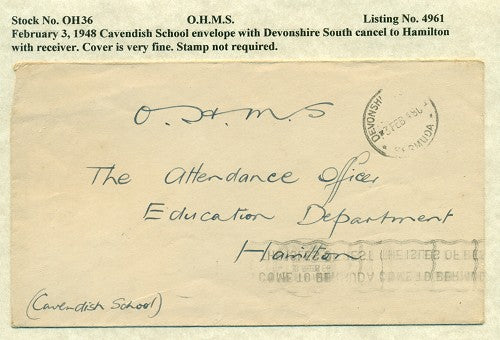 Stock No. OH36 O.H.M.S. Listing No. 4961
February 3, 1948 Cavendish School envelope with Devonshire South cancel to Hamilton
with receiver. Cover is very fine. Stamp not required.
O.H.M.S
DEVONSHI
BERMUDA
The Attendance Officer
Education Department
Hamilton
THE ISLES OF
COME TO BERMUDA COME TO BERMU
(Cavendish School)